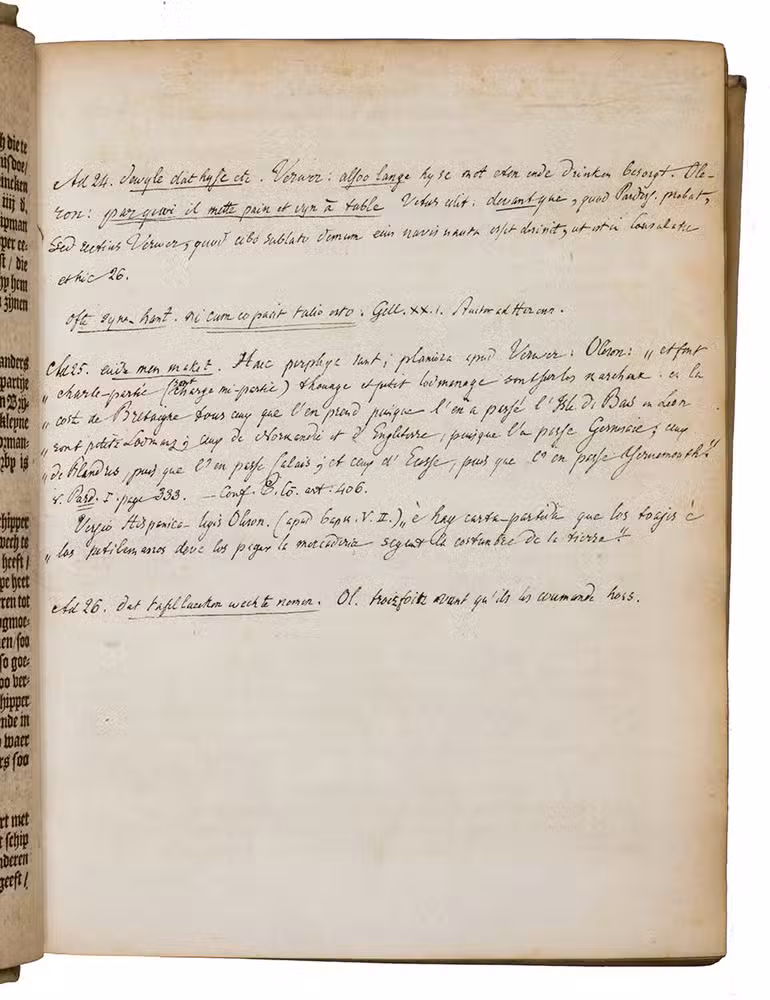 h die te
ncken
iiij d,
ipman
per ee-
st / die
hy hem
zijnen
anders
partije
kleyne
hipper
wech te
heeft /
pe heet
ren tot
ogmoe-
en / soo
so goe-
oo ver-
hipper
nde in
waer
rs soo
rt met
t schip
nderen
geeft /
Ad 24. dewyle dat hyse etc. Verwer: alsoo lange hyse met eten ende drinken besorgt. Ole-
ron: par quoi il mette pain et vyn à table Vetus edit: devant que, quod Pardess. probat,
sed rectius Verwer, quod cibo sublato demum eius navis nauta esse desinit, ut est in Consulatu
et hic 26.
ofte syne hant. ni cum eo pacit talio esto. Gell. XX. 1. Auctor ad Herenn.
Ad 25. ende men maket. Haec perplexe sunt; planiora apud Verwer: Oleron: „ et font
„ charte-partie ( charge mi-partie) thouage et petit lodmenage sont sur les marchans. en la
„ cost de Bretagne tous ceux que l'en prend puisque l'en a passé l'Isle de Bas en Leon
„ sont petits Lodmans; ceux de Normandie et d'Engleterre, puisque l'a passe Gernesaie; ceux
„ de Flandres, puis que l'on passe Calais; et ceux d'Ecosse, puis que l'on passe Yernemouth."
v. Pard. I. page 333. — Conf. art: 406.
Versio Hispanica legis Oleron. (apud Capm. V. II.) „ è hay carta-partida que los toajes è
„ los petilemanes deve los pagar la mercaderia segunt la costumbre de la tierra."
Ad 26. dat tafellaecken wech te nemen. Ol. troix foitz avant qu'ils les coumande hors.